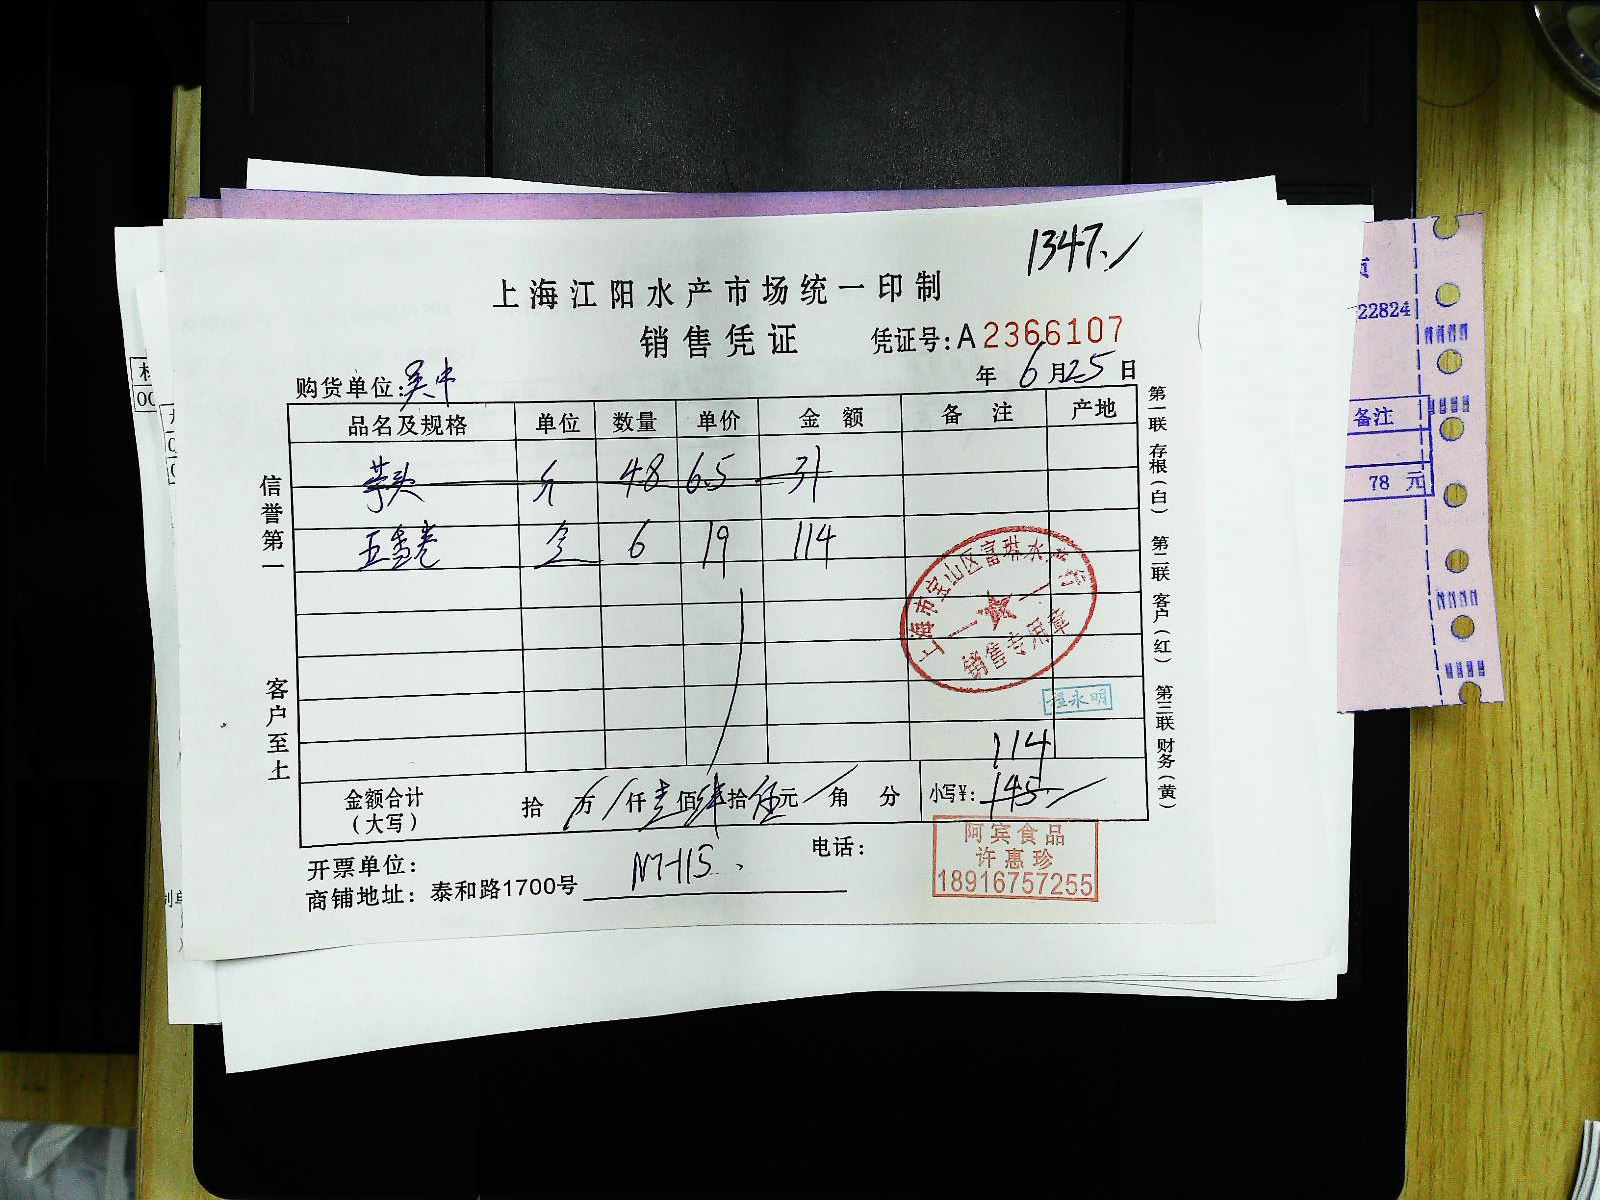 1347.
上海江阳水产市场统一印制
销售凭证 凭证号:A2366107
购货单位: 吴中 年 6 月 25 日
品名及规格 单位 数量 单价 金额 备注 产地
芋头 斤 48 6.5 31
6 19 114
信誉第一
客户至上
第一联 存根(白) 第二联 客户(红) 第三联 财务(黄)
上海市宝山区富琳水产行
销售专用章
程永明
114
金额合计 拾 万 仟 壹 佰 肆 拾 伍 元 角 分 小写¥: 145
(大写)
开票单位: 电话:
商铺地址: 泰和路1700号
阿宾食品
许惠珍
18916757255
22824
备注
78 元